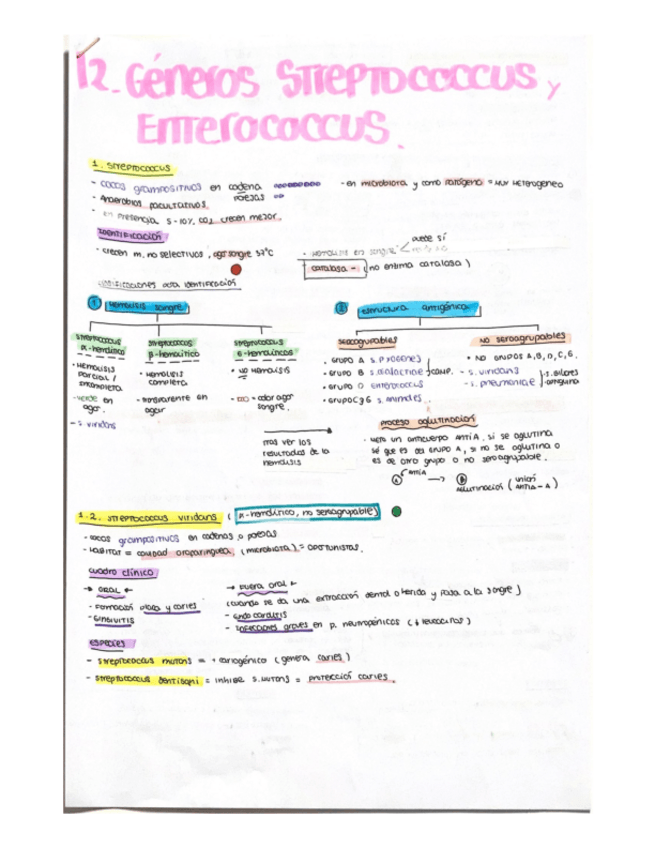 12. Géneros Streptococcus y
Enterococcus.
1. Streptococcus
- cocos grampositivos en cadena
parejas
- en microbiota y como patógeno = muy heterogeneo
- Anaerobios facultativos.
- en presencia 5-10% CO2 crecen mejor.
Identificación
- crecen m. no selectivos, agar sangre 37°C
- Hemólisis en sangre
puede sí
catalasa - (no enzima catalasa)
clasificaciones para identificación
1 Hemólisis sangre
2 estructura antigénica.
Streptococcus α-hemolítico
Streptococcus β-hemolítico
Streptococcus
seroagrupables
NO seroagrupables
• Hemólisis parcial / incompleta
• Hemólisis completa
• NO Hemólisis
• Grupo A S. pyogenes
• Grupo B S. agalactiae
• Grupo D Enterococcus
• Grupo C y G S. animales
• NO Grupos A, B, D, C, G.
- S. viridans
- S. pneumoniae
- verde en agar.
- transparente en agar
- color agar sangre.
- S. viridans
tras ver los resultados de la hemólisis
Proceso aglutinación
- meto un anticuerpo ANTI A, si se aglutina
sé que es del grupo A, si no se aglutina o
es de otro grupo o no seroagrupable.
ANTIA
A → B
Aglutinación (unión ANTIA - A)
1.2. Streptococcus viridans (α-hemolítico, no seroagrupable)
- cocos grampositivos en cadenas o parejas
- Habitat = cavidad orofaringuea (microbiota) = oportunistas.
cuadro clínico
→ ORAL ←
→ Fuera oral ←
- Formación placa y caries
(cuando se da una extracción dental o herida y pasa a la sangre)
- Gingivitis
- endocarditis
- infecciones graves en p. neutropénicos (↓ leucocitos)
especies
- Streptococcus mutans = + cariogénico (genera caries)
- Streptococcus dentisani = inhibe S. mutans = protección caries.